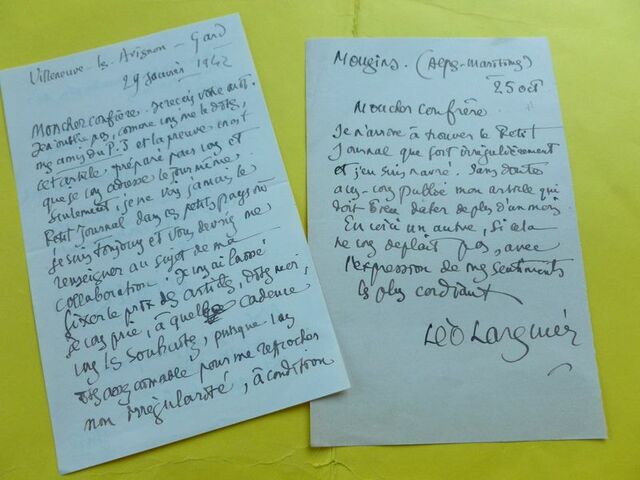 Villeneuve-lès-Avignon - Gard
29 Janvier 1942
Mon cher confrère. Je reçois votre mot.
Je n'oublie pas, comme vous me le dites,
mes amis du P.J et la preuve, en est
cet article, préparé pour vous et
que je vous adresse le jour même.
Seulement, je ne vois jamais le
Petit Journal dans les petits pays où
je suis toujours et vous devriez me
renseigner au sujet de ma
collaboration. Je vous ai laissé
fixer le prix des articles, dites moi,
je vous prie, à quelle cadence,
vous les souhaitez, puisque vous
êtes assez aimable pour me reprocher
mon irrégularité, à condition
Mougins. (Alpes-Maritimes)
25 oct
Mon cher confrère
Je n'arrive à trouver le Petit
Journal que fort irrégulièrement
et j'en suis navré. Sans doute
avez-vous publié mon article qui
doit bien dater de plus d'un mois
En voici un autre, si cela
ne vous déplait pas, avec
l'expression de mes sentiments
les plus cordiaux
Léo Larguier